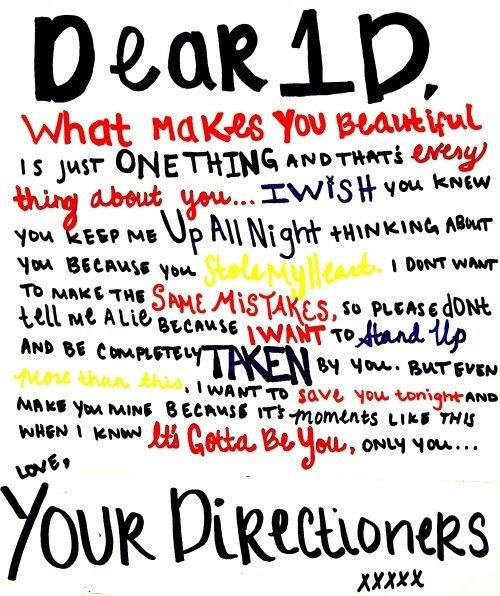 Dear 1D,
What Makes You Beautiful
is just ONE THING AND THAT'S every
thing about you... I WISH you KNEW
you KEEP ME Up All Night thinking about
you because you Stole My Heart. I DONT WANT
TO MAKE THE SAME MISTAKES, so please dont
tell me A Lie because I WANT to Stand Up
AND BE COMPLETELY TAKEN by you. But even
More than this, I want to save you tonight AND
MAKE you MINE BECAUSE it's moments LIKE THIS
WHEN I KNOW It's Gotta Be You, ONLY YOU...
LOVE,
YOUR DIRECTIONERS
xxxxx